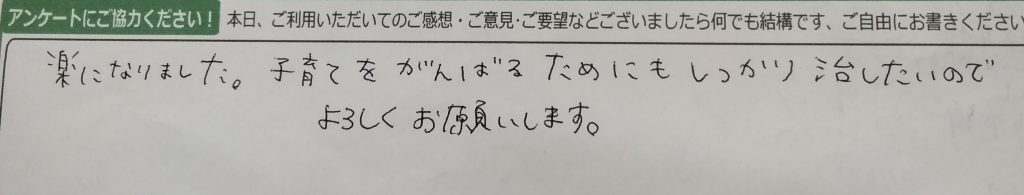 アンケートにご協力ください！ 本日、ご利用いただいてのご感想・ご意見・ご要望などございましたら何でも結構です、ご自由にお書きください
楽になりました。子育てをがんばるためにもしっかり治したいので
よろしくお願いします。